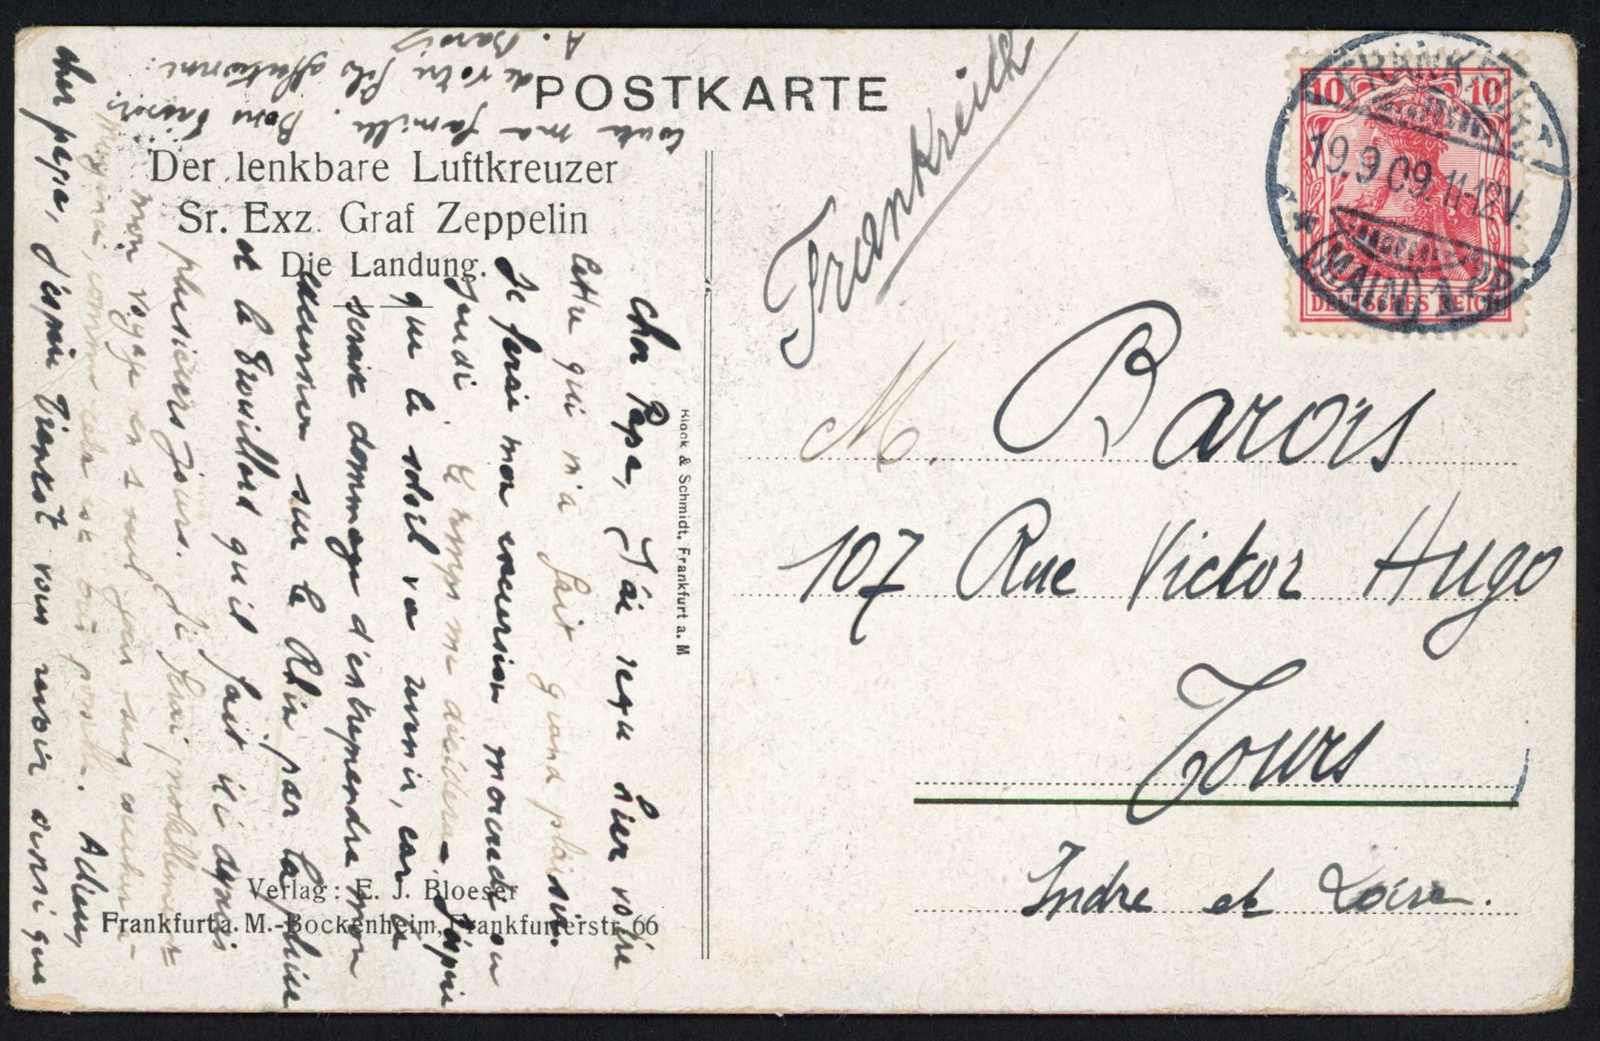 POSTKARTE
Der lenkbare Luftkreuzer
Sr. Exz. Graf Zeppelin
Die Landung.
Klock & Schmidt, Frankfurt a. M
Verlag: E. J. Bloeser
Frankfurt a. M.-Bockenheim, Frankfurterstr. 66
Frankreich
10 10
DEUTSCHES REICH
FRANKFURT
19.9.09. 11-12V.
(MAIN) 1
M. Barois
107 Rue Victor Hugo
Tours
Indre et Loire.
Cher Papa, J'ai reçu hier votre
lettre qui m'a fait grand plaisir.
Je ferai mon excursion mercredi ou
Jeudi. le temps me décidera - J'espère
que le soleil va revenir, car ce
serait dommage d'entreprendre mon
excursion sur le Rhin par la pluie
et le brouillard qu'il fait ici depuis
plusieurs jours. Je ferai probablement
mon voyage en seul jour sans
comme cela se peut. Adieu,
cher papa, j'espère bientôt vous revoir ainsi que
toute ma famille. Bons baisers
de votre fils affectionné:
A. Barois